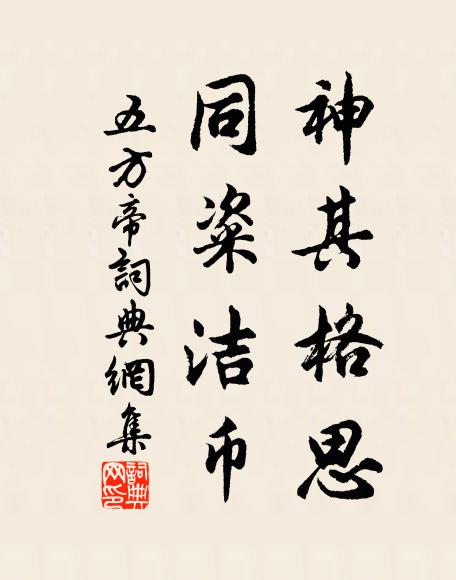 神其格思
同粢洁币
五方帝詞典網集
詞典網印